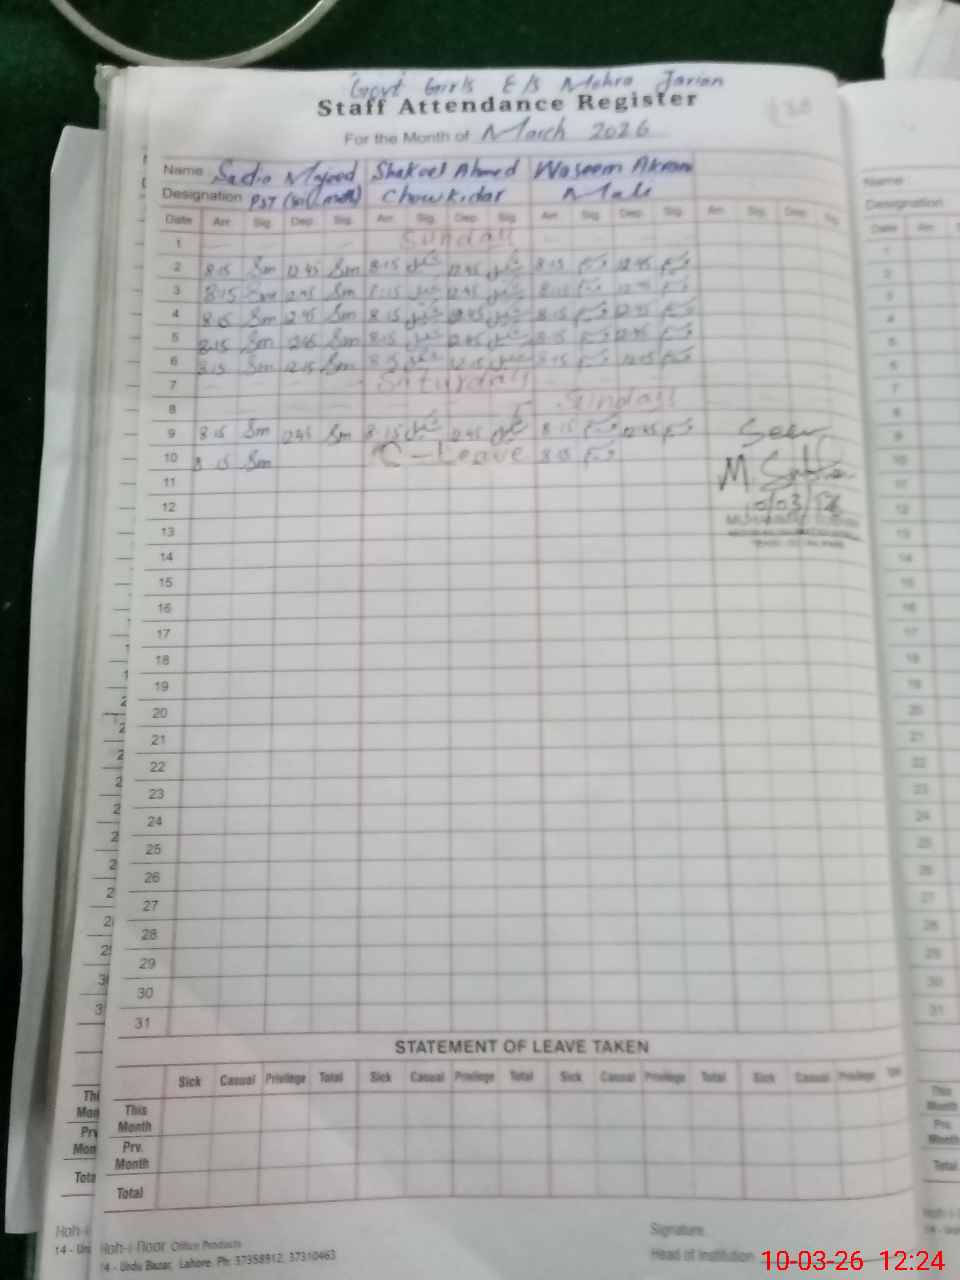 Govt Girls E/S Mohra Jarian
Staff Attendance Register
For the Month of March 2026
Name Sadia Majeed Shakeel Ahmed Waseem Akram
Designation PST Chowkidar Mali
Date Arr. Sig. Dep. Sig. Arr. Sig. Dep. Sig. Arr. Sig. Dep. Sig. Arr. Sig. Dep. Sig.
1 Sunday
2 8.15 Sm 12.45 Sm 8.15 شکیل 12.45 شکیل 8.15 وسیم 12.45 وسیم
3 8.15 Sm 12.45 Sm 8.15 شکیل 12.45 شکیل 8.15 وسیم 12.45 وسیم
4 8.15 Sm 12.45 Sm 8.15 شکیل 12.45 شکیل 8.15 وسیم 12.45 وسیم
5 8.15 Sm 12.45 Sm 8.15 شکیل 12.45 شکیل 8.15 وسیم 12.45 وسیم
6 8.15 Sm 12.15 Sm 8.15 شکیل 12.15 شکیل 8.15 وسیم 12.15 وسیم
7 Saturday
8 Sunday
9 8.15 Sm 12.45 Sm 8.15 شکیل 12.45 شکیل 8.15 وسیم 12.45 وسیم
Seen
10 8.15 Sm C-Leave 8.15 وسیم
M.
11
12
10/03/26
13
14
15
16
17
18
19
20
21
22
23
24
25
26
27
28
29
30
31
STATEMENT OF LEAVE TAKEN
Sick Casual Privilege Total Sick Casual Privilege Total Sick Casual Privilege Total Sick Casual Privilege Total
This Month
Prv. Month
Total
Signature
Head of Institution
Koh-i-Noor Office Products
14 - Urdu Bazar, Lahore. Ph: 37358912, 37310463
10-03-26 12:24